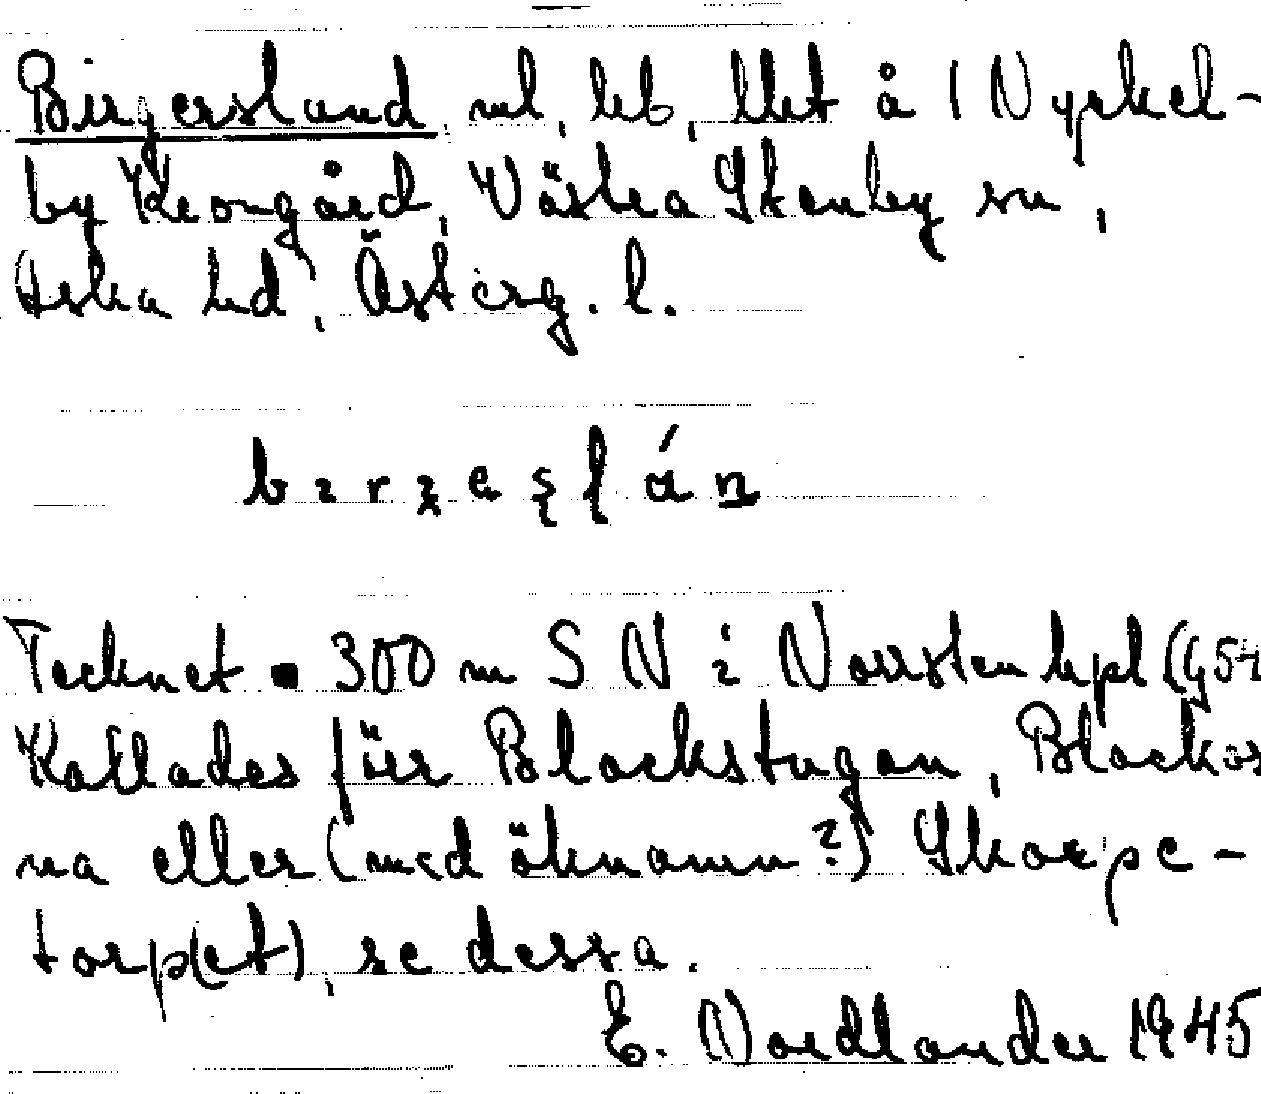 Birgerslund, ml, leb, llet å 1 Nyckel-
by Krongård, Västra Stenby sn,
Aska hd, Österg. l.
Tecknet ▪ 300 m S N i Norrsten hpl (G54
Kallades förr Blackstugan, Blackor
na eller (med öknamn?) Skorpe-
torp(et), se dessa.
E. Nordlander 1945